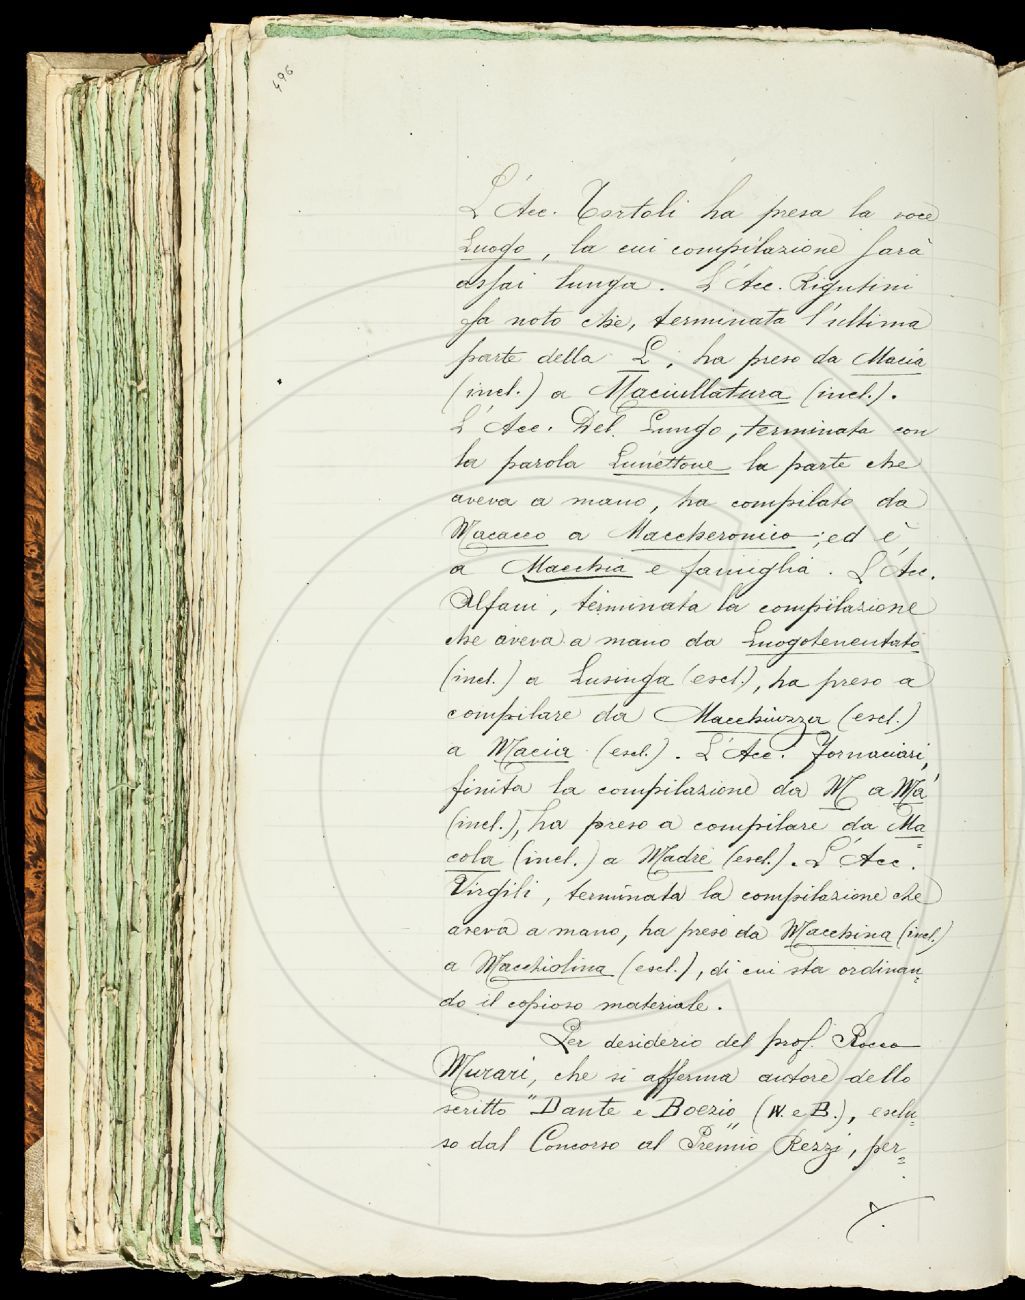 496
L'Acc. Tortoli ha presa la voce
Luogo, la cui compilazione sarà
assai lunga. L'Acc. Rigutini
fa noto che, terminata l'ultima
parte della L, ha preso da Macía
(incl.) a Maciullatura (incl.).
L'Acc. Del Lungo, terminata con
la parola Lunettone la parte che
aveva a mano, ha compilato da
Macacco a Maccheronico; ed è
a Macchia e famiglia. L'Acc.
Alfani, terminata la compilazione
che aveva a mano da Luogotenentato
(incl.) a Lusinga (escl.), ha preso a
compilare da Macchiuzza (escl.)
a Macía (escl.). L'Acc. Fornaciari,
finita la compilazione da M a Má
(incl.), ha preso a compilare da Ma=
cola (incl.) a Madre (escl.). L'Acc.
Virgili, terminata la compilazione che
aveva a mano, ha preso da Macchina (incl.)
a Macchiolina (escl.), di cui sta ordinan=
do il copioso materiale.
Per desiderio del prof. Rocco
Murari, che si afferma autore dello
scritto "Dante e Boezio (N. e B.), esclu=
so dal Concorso al Premio Rezzi, per=